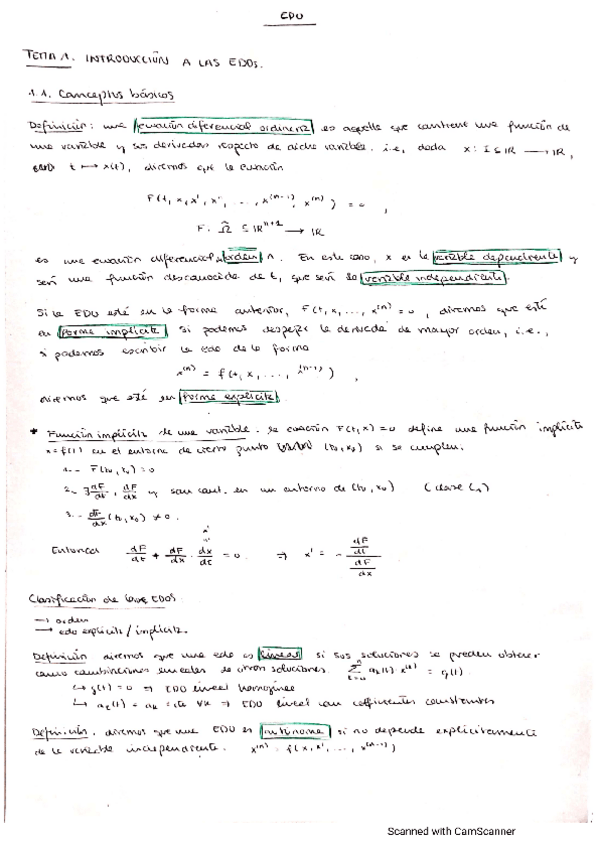 EDO
TEMA 1. INTRODUCCIÓN A LAS EDOs.
1.1. Conceptos básicos
Definición: una ecuación diferencial ordinaria es aquella que contiene una función de
una variable y sus derivadas respecto de dicha variable. i.e, dada x: I ⊆ IR → IR,
t ↦ x(t), diremos que la ecuación
F(t, x, x', x'', ..., x^(n-1), x^(n)) = 0,
F: Ω̃ ⊆ IR^(n+2) → IR
es una ecuación diferencial de orden n. En este caso, x es la variable dependiente y
será una función desconocida de t, que será la variable independiente.
Si la EDO está en la forma anterior, F(t, x, ..., x^(n)) = 0, diremos que está
en forma implícita. Si podemos despejar la derivada de mayor orden, i.e.,
si podemos escribir la edo de la forma
x^(n) = f(t, x, ..., x^(n-1)),
diremos que está en forma explícita.
* Función implícita de una variable. la ecuación F(t,x)=0 define una función implícita
x=f(t) en el entorno de cierto punto (t₀, x₀) si se cumplen:
1.- F(t₀, x₀) = 0
2.- ∃ dF/dt, dF/dx y son cont. en un entorno de (t₀, x₀) (clase C₁)
3.- dF/dx (t₀, x₀) ≠ 0.
x'
Entonces dF/dt + dF/dx · dx/dt = 0 ⇒ x' = - (dF/dt)/(dF/dx)
Clasificación de las EDOs
→ orden
→ edo explícita / implícita.
Definición diremos que una edo es lineal si sus soluciones se pueden obtener
como combinaciones lineales de otras soluciones. Σ aₖ(t) · x^(k) = g(t)
↳ g(t) = 0 ⇒ EDO lineal homogénea
↳ aₖ(t) = aₖ = cte ∀k ⇒ EDO lineal con coeficientes constantes
Definición. diremos que una EDO es autónoma si no depende explícitamente
de la variable independiente. x^(n) = f(x, x', ..., x^(n-1))
Scanned with CamScanner